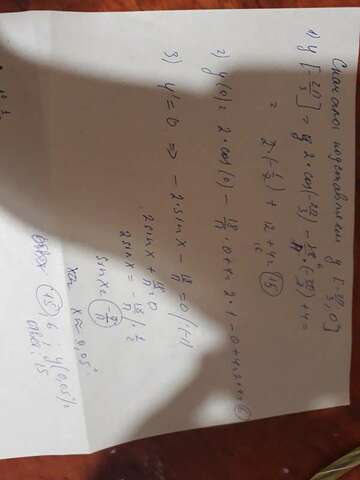 Сначала подставляем y [-2π/3; 0]
1) y[-2π/3] = y 2·cos(-2π/3) - 18/π·(-2π/3) + 4 =
= 2·(-1/2) + 12 + 4 = 15
2) y(0) = 2·cos(0) - 18/π·0 + 4 = 2·1 - 0 + 4 = 2 + 4 = 6
3) y' = 0 => -2·sinx - 18/π = 0 /(-1)
2sinx + 18/π = 0
2sinx = -18/π /·1/2
sinx = -9/π
x ≈ 0,05°
15; 6; y(0,05°) =
Ответ: 15